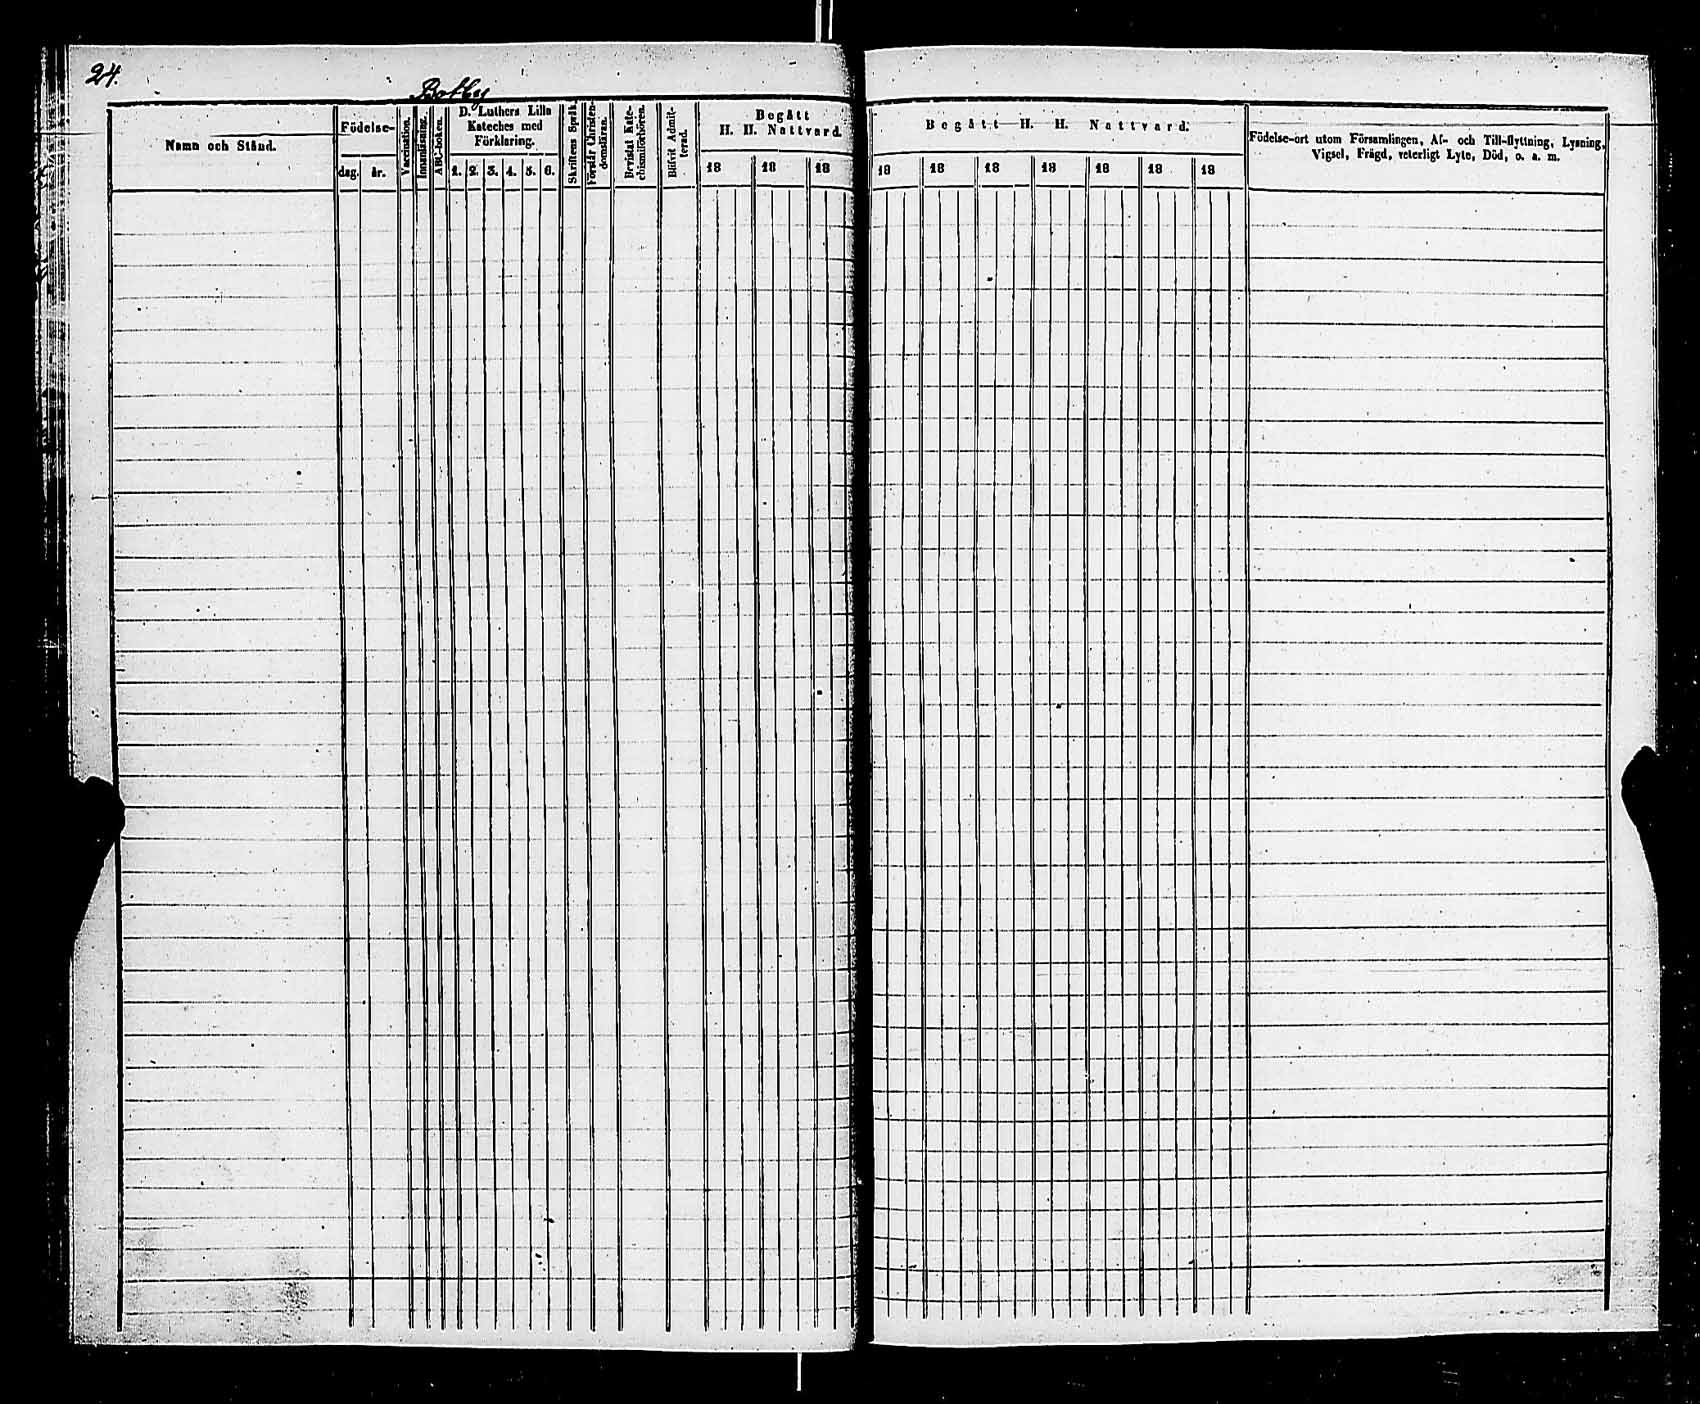 24.
Botby
Namn och Stånd.
Födelse-
dag. år.
Vaccination.
Innanläsning.
ABC-boken.
D. Luthers Lilla
Kateches med
Förklaring.
1. 2. 3. 4. 5. 6.
Skriftens Språk.
Förstår Christen-
domsläran.
Bevistat Kate-
chismiförhören.
Blifvit Admit-
terad.
Begått
H. H. Nattvard.
18 18 18
Begått H. H. Nattvard.
18 18 18 18 18 18 18
Födelse-ort utom Församlingen, Af- och Till-flyttning, Lysning,
Vigsel, Frägd, veterligt Lyte, Död, o. s. m.